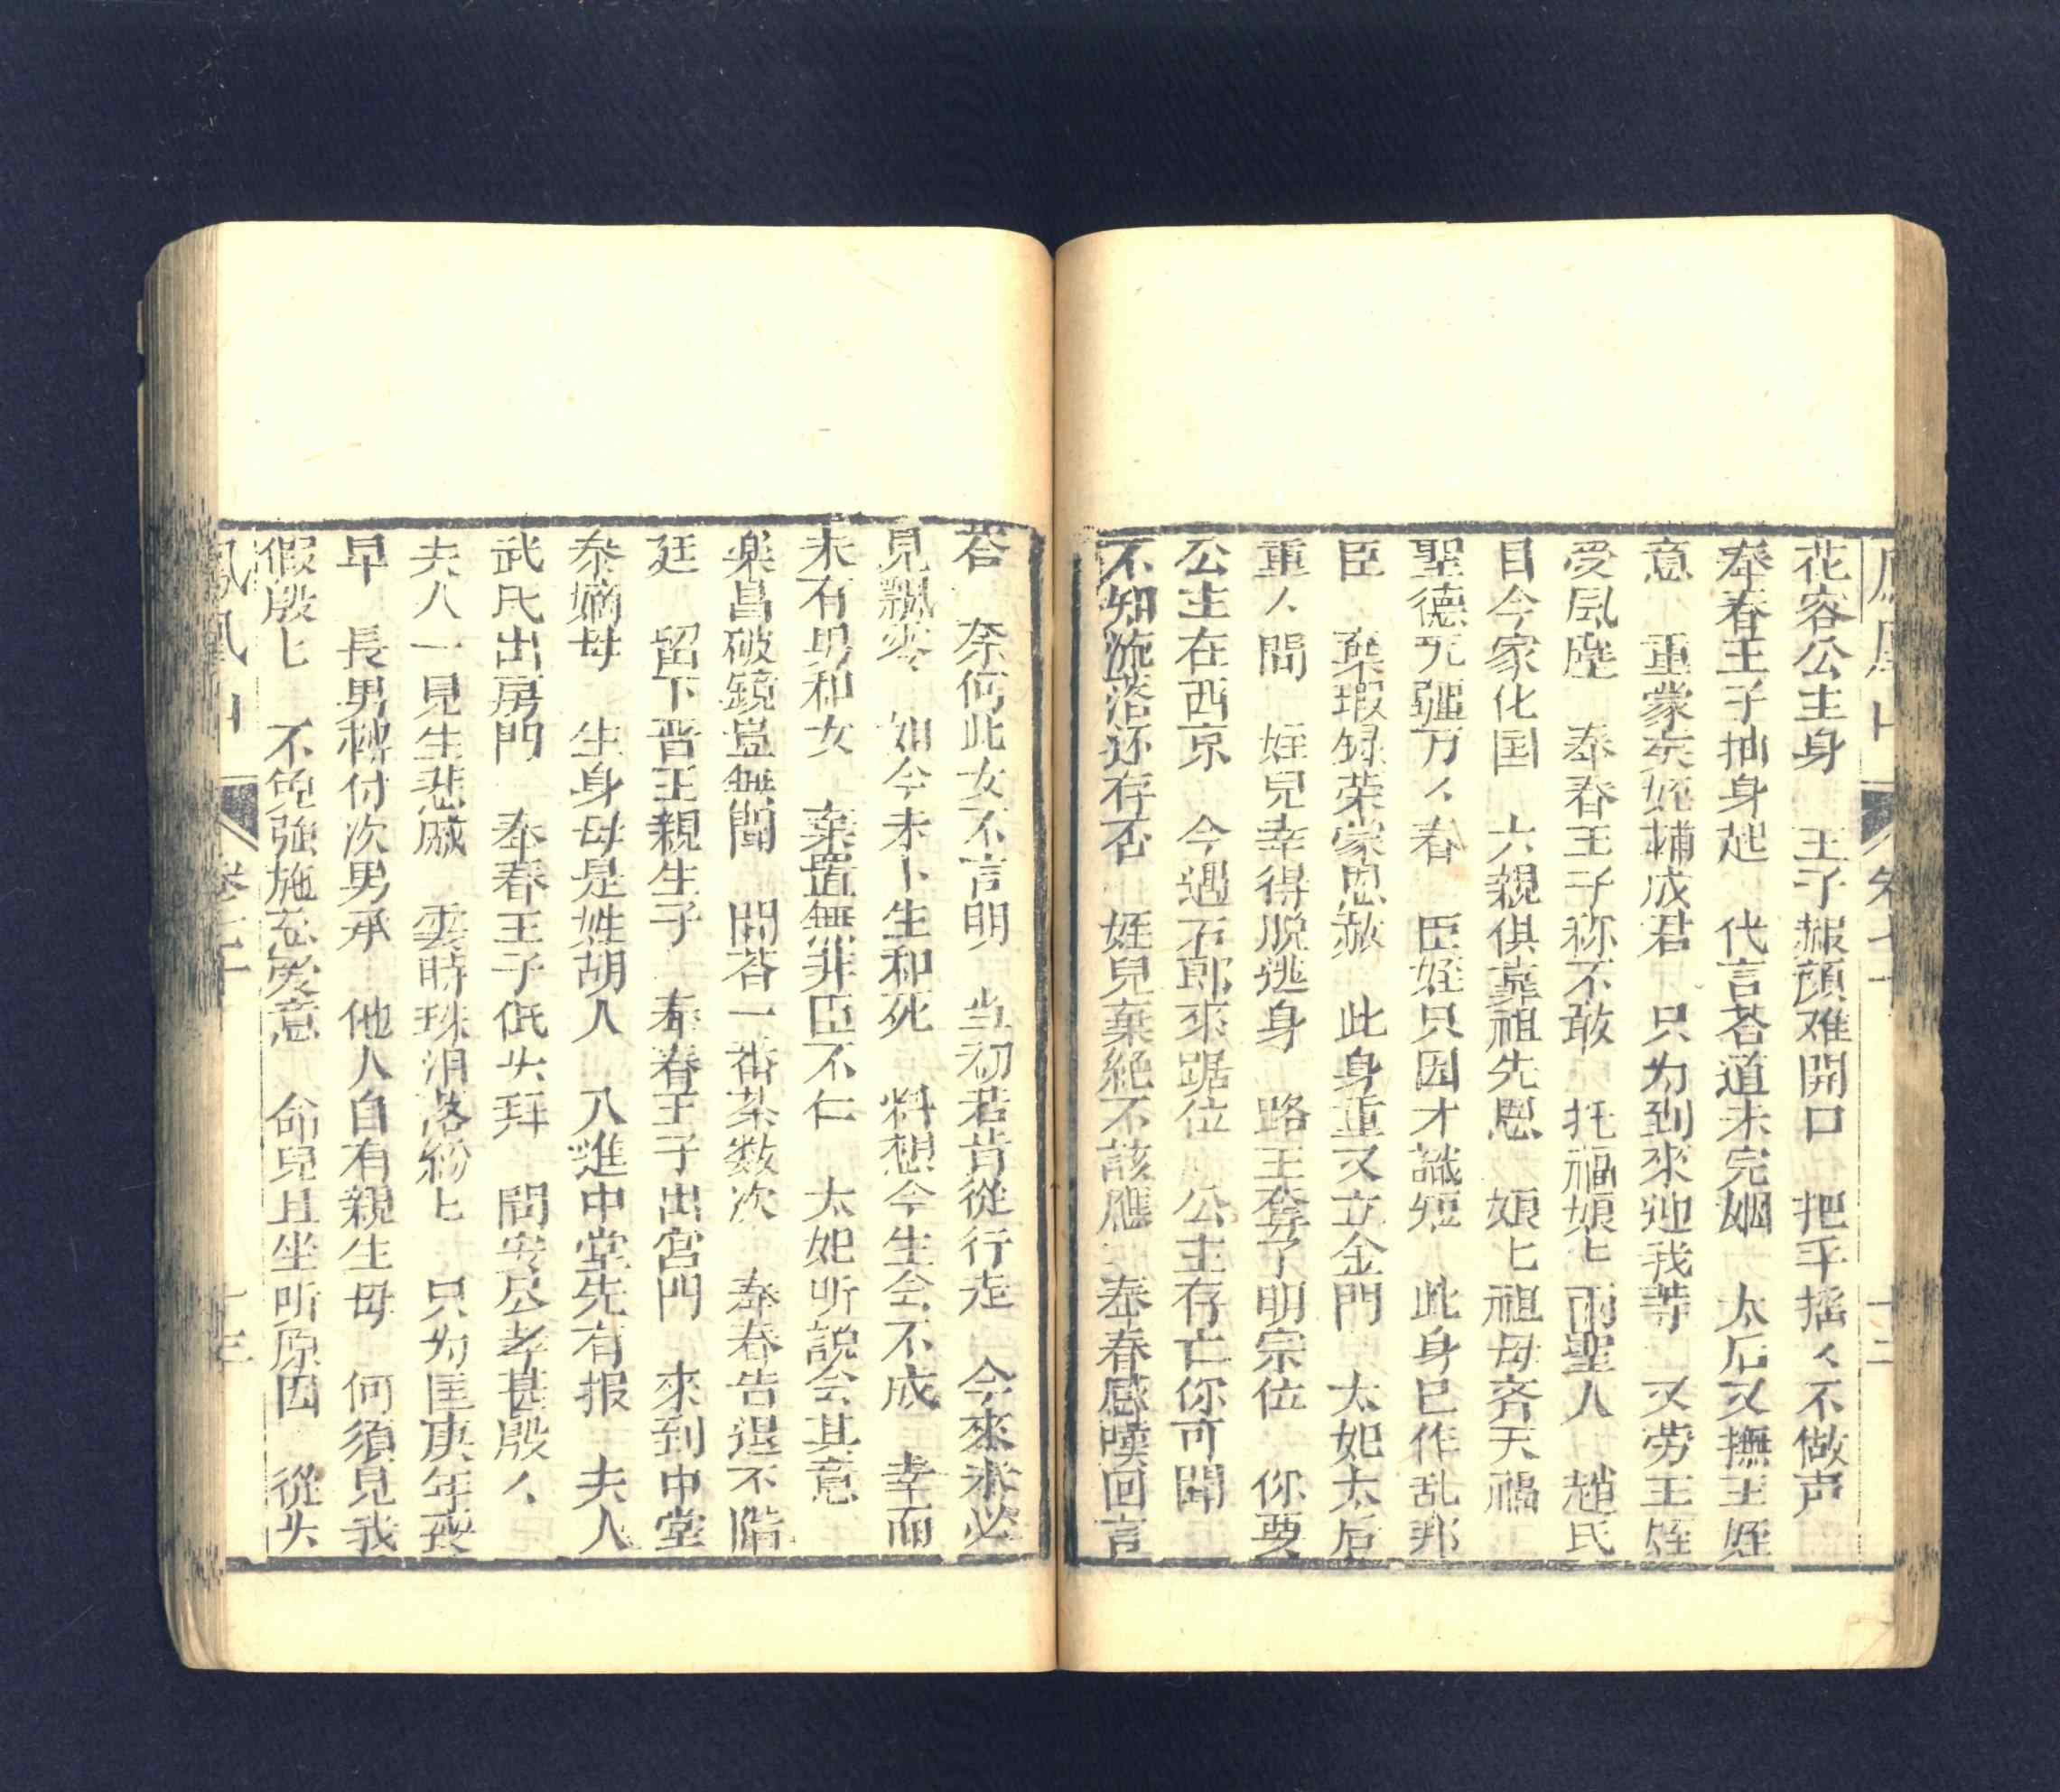 花容公主身　王子赧顔难開口　把手摇〻不做声
奉春王子抽身起　代言荅道未完姻　太后又撫王姪
意　重蒙矦姪補成君　只为到來迎我等　又劳王姪
受風塵　奉春王子称不敢　托福娘匕兩聖人　趙氏
目今家化国　六親俱靠祖先恩　娘匕祖母齐天福
聖德无疆万〻春　臣姪只因才識短　此身已作乱邦
臣　棄瑕録荣蒙恩赦　此身重又立金門　太妃太后
重〻問　姪兒幸得脱逃身　路王奪了明宗位　你要
公主在西京　今遇石郎來踞位　公主存亡你可聞
不知流落还存否　姪兒棄絶不該應　奉春感嘆回言
荅　奈何此女不言明　当初若肯從行走　今來未必
見飄零　如今未卜生和死　料想今生会不成　幸而
未有男和女　棄置無非臣不仁　太妃听説会其意
楽昌破鏡豈無聞　問荅一番茶数次　奉春告退下階
廷　留下晋王親生子　奉春王子出宮門　來到中堂
叅嫡母　生身母是姓胡人　入進中堂先有报　夫人
武氏出房門　奉春王子低头拜　問安尽孝甚殷〻
夫人一見生悲戚　雲時珠淚落紛匕　只为匡庚年喪
早　長男轉付次男承　他人自有親生母　何須見我
假殷匕　不免強施恩爱意　命兒且坐听原因　從头
鳳凰山　卷二十　十三